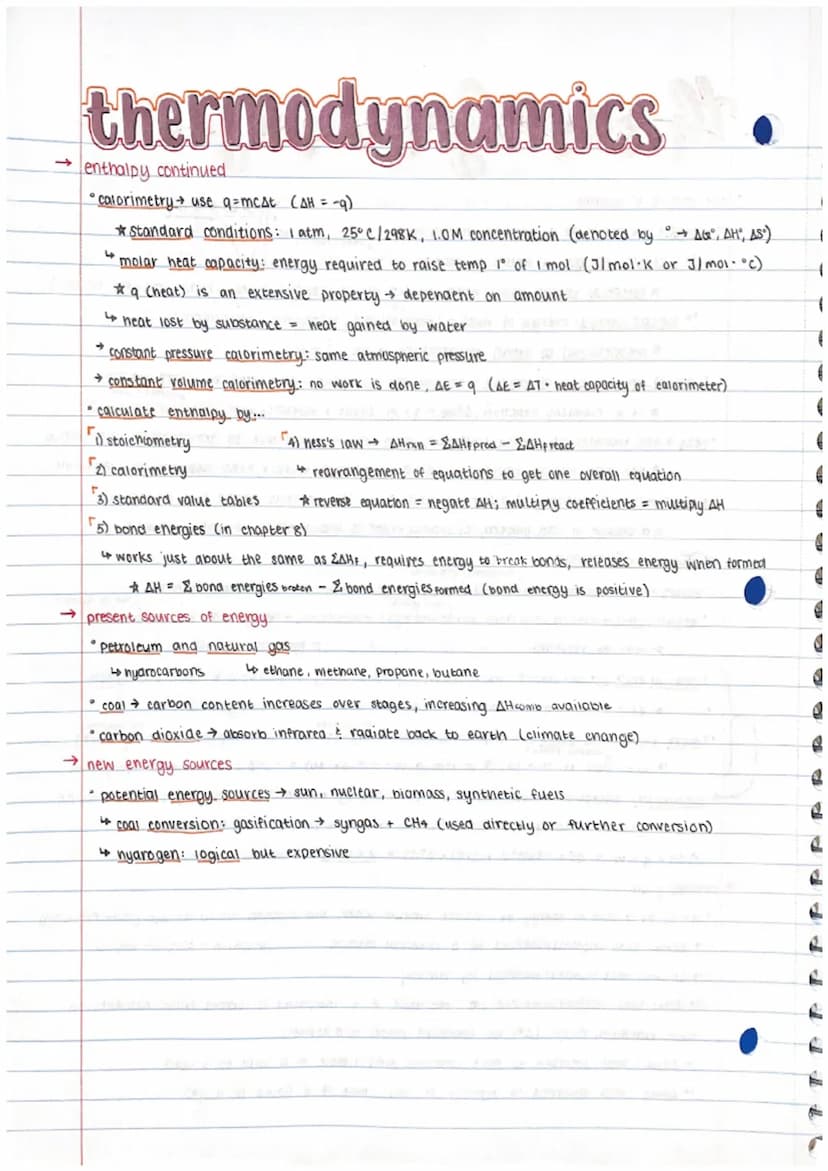 thermodynamics
→ enthalpy continued
° calorimetry → use q=mcΔt (ΔH = -q)
★ standard conditions: 1 atm, 25°C/298K, 1.0M concentration (denoted by ° → ΔG°, ΔH°, ΔS°)
↳ molar heat capacity: energy required to raise temp 1° of 1 mol (J/mol·K or J/mol·°C)
★ q (heat) is an extensive property → dependent on amount
↳ heat lost by substance = heat gained by water
→ constant pressure calorimetry: same atmospheric pressure
→ constant volume calorimetry: no work is done, ΔE = q (ΔE = ΔT · heat capacity of calorimeter)
° calculate enthalpy by...
1) stoichiometry 4) Hess's law → ΔHrxn = ΣΔHf prod − ΣΔHf react
2) calorimetry ↳ rearrangement of equations to get one overall equation
3) standard value tables ★ reverse equation = negate ΔH; multiply coefficients = multiply ΔH
5) bond energies (in chapter 8)
↳ works just about the same as ΣΔHf, requires energy to break bonds, releases energy when formed
★ ΔH = Σ bond energies broken − Σ bond energies formed (bond energy is positive)
→ present sources of energy
° petroleum and natural gas
↳ hydrocarbons ↳ ethane, methane, propane, butane
° coal → carbon content increases over stages, increasing ΔHcomb available
° carbon dioxide → absorb infrared & radiate back to earth (climate change)
→ new energy sources
° potential energy sources → sun, nuclear, biomass, synthetic fuels
↳ coal conversion: gasification → syngas + CH4 (used directly or further conversion)
↳ hydrogen: logical but expensive